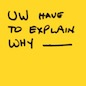 UW HAVE
TO EXPLAIN
WHY ___